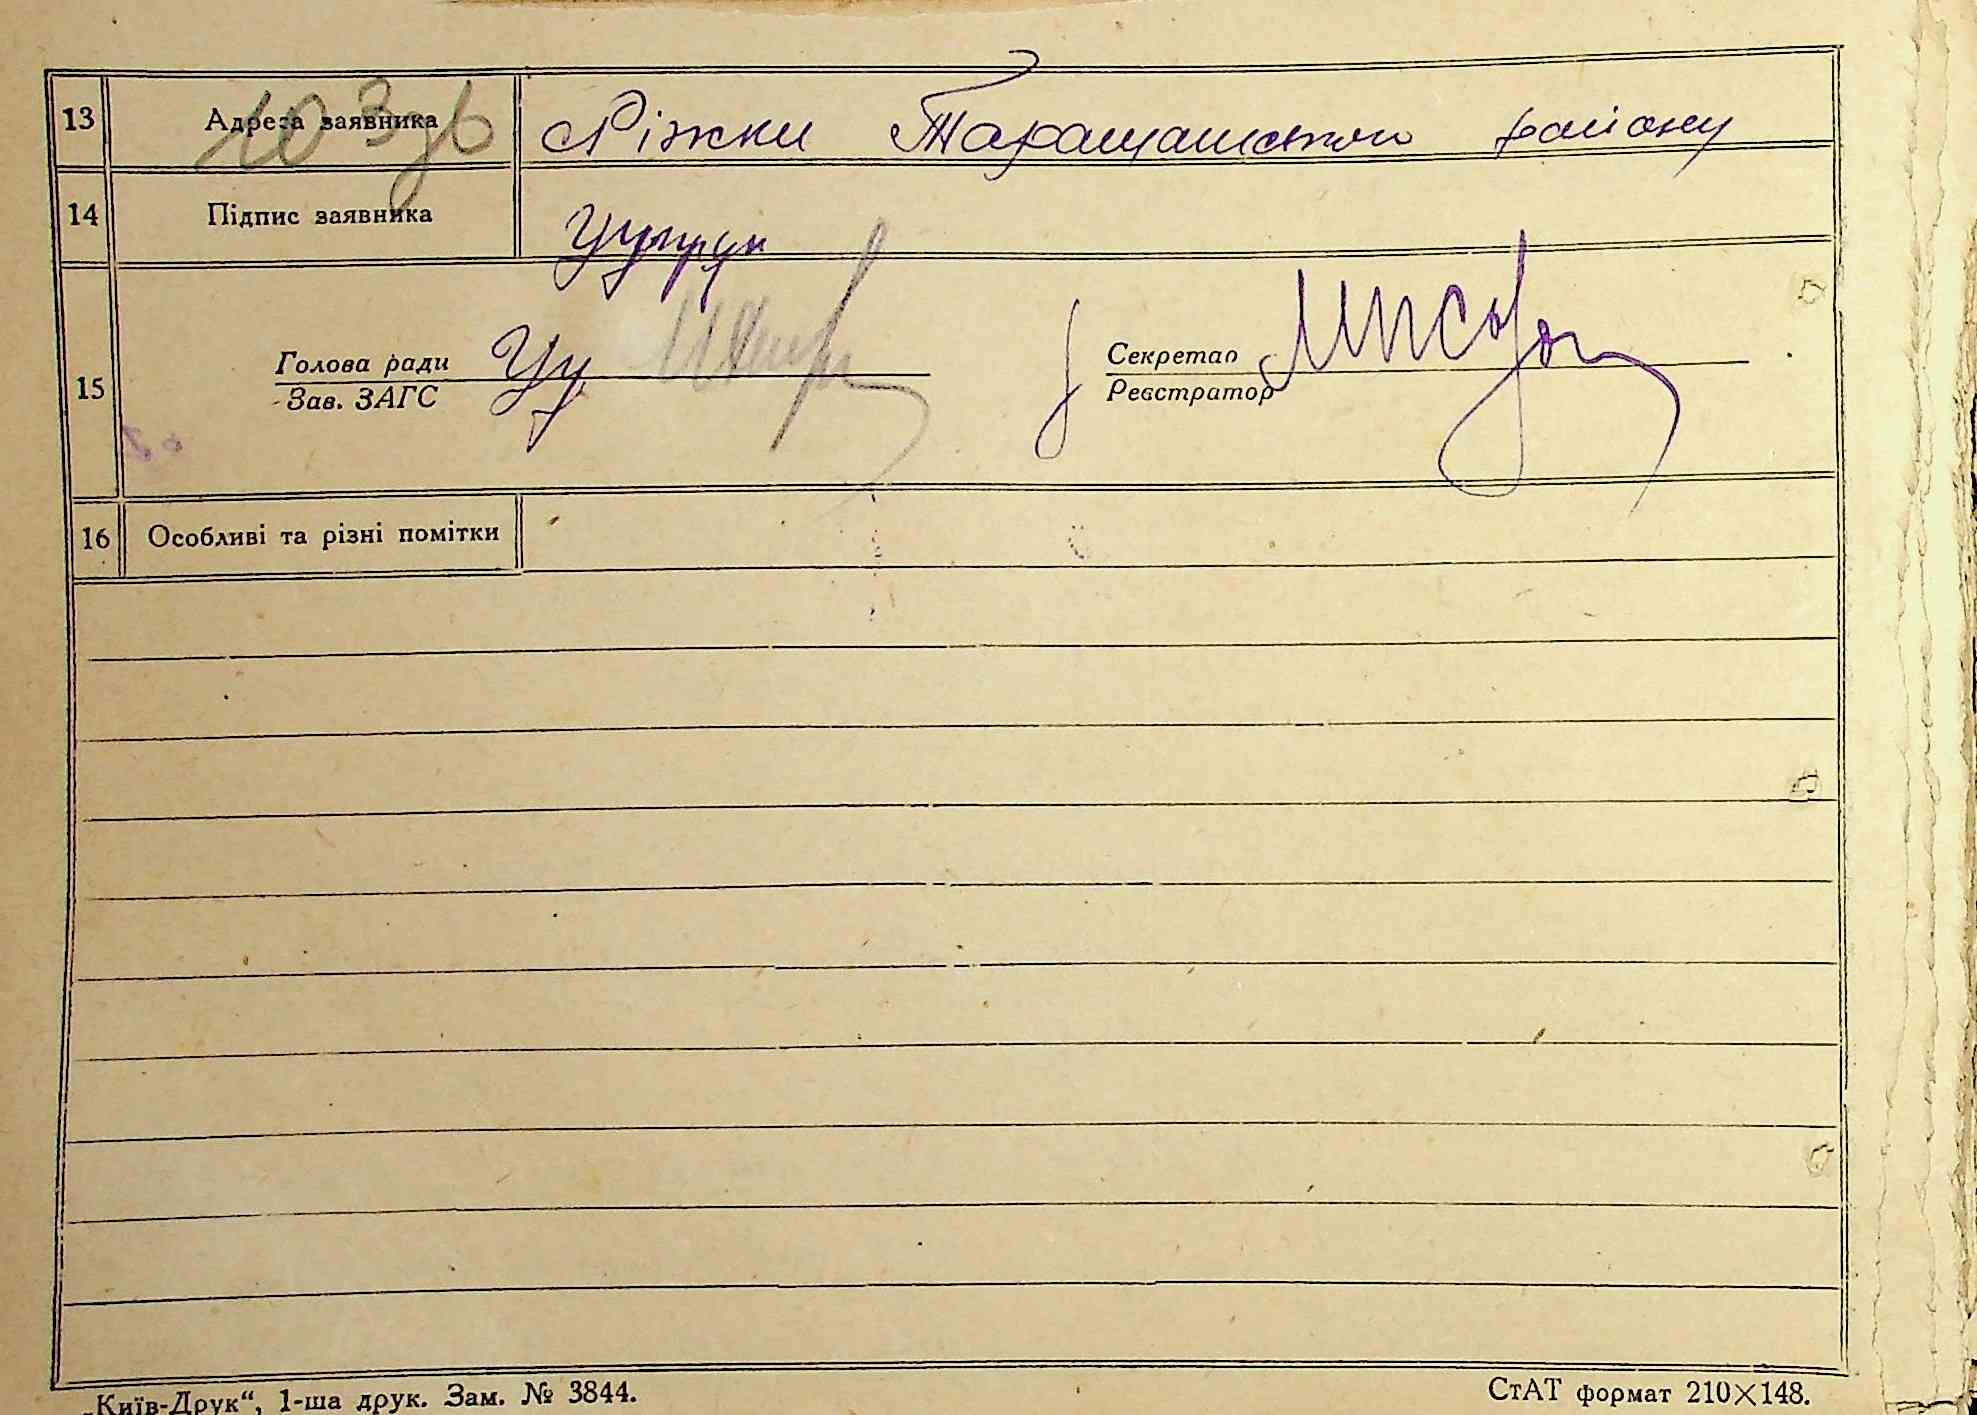 13 Адреса заявника Ріжки Таращанського району
14 Підпис заявника
15 Голова ради Секретар
Зав. ЗАГС Реєстратор
16 Особливі та різні помітки
„Київ-Друк“, 1-ша друк. Зам. № 3844. СтАТ формат 210×148.